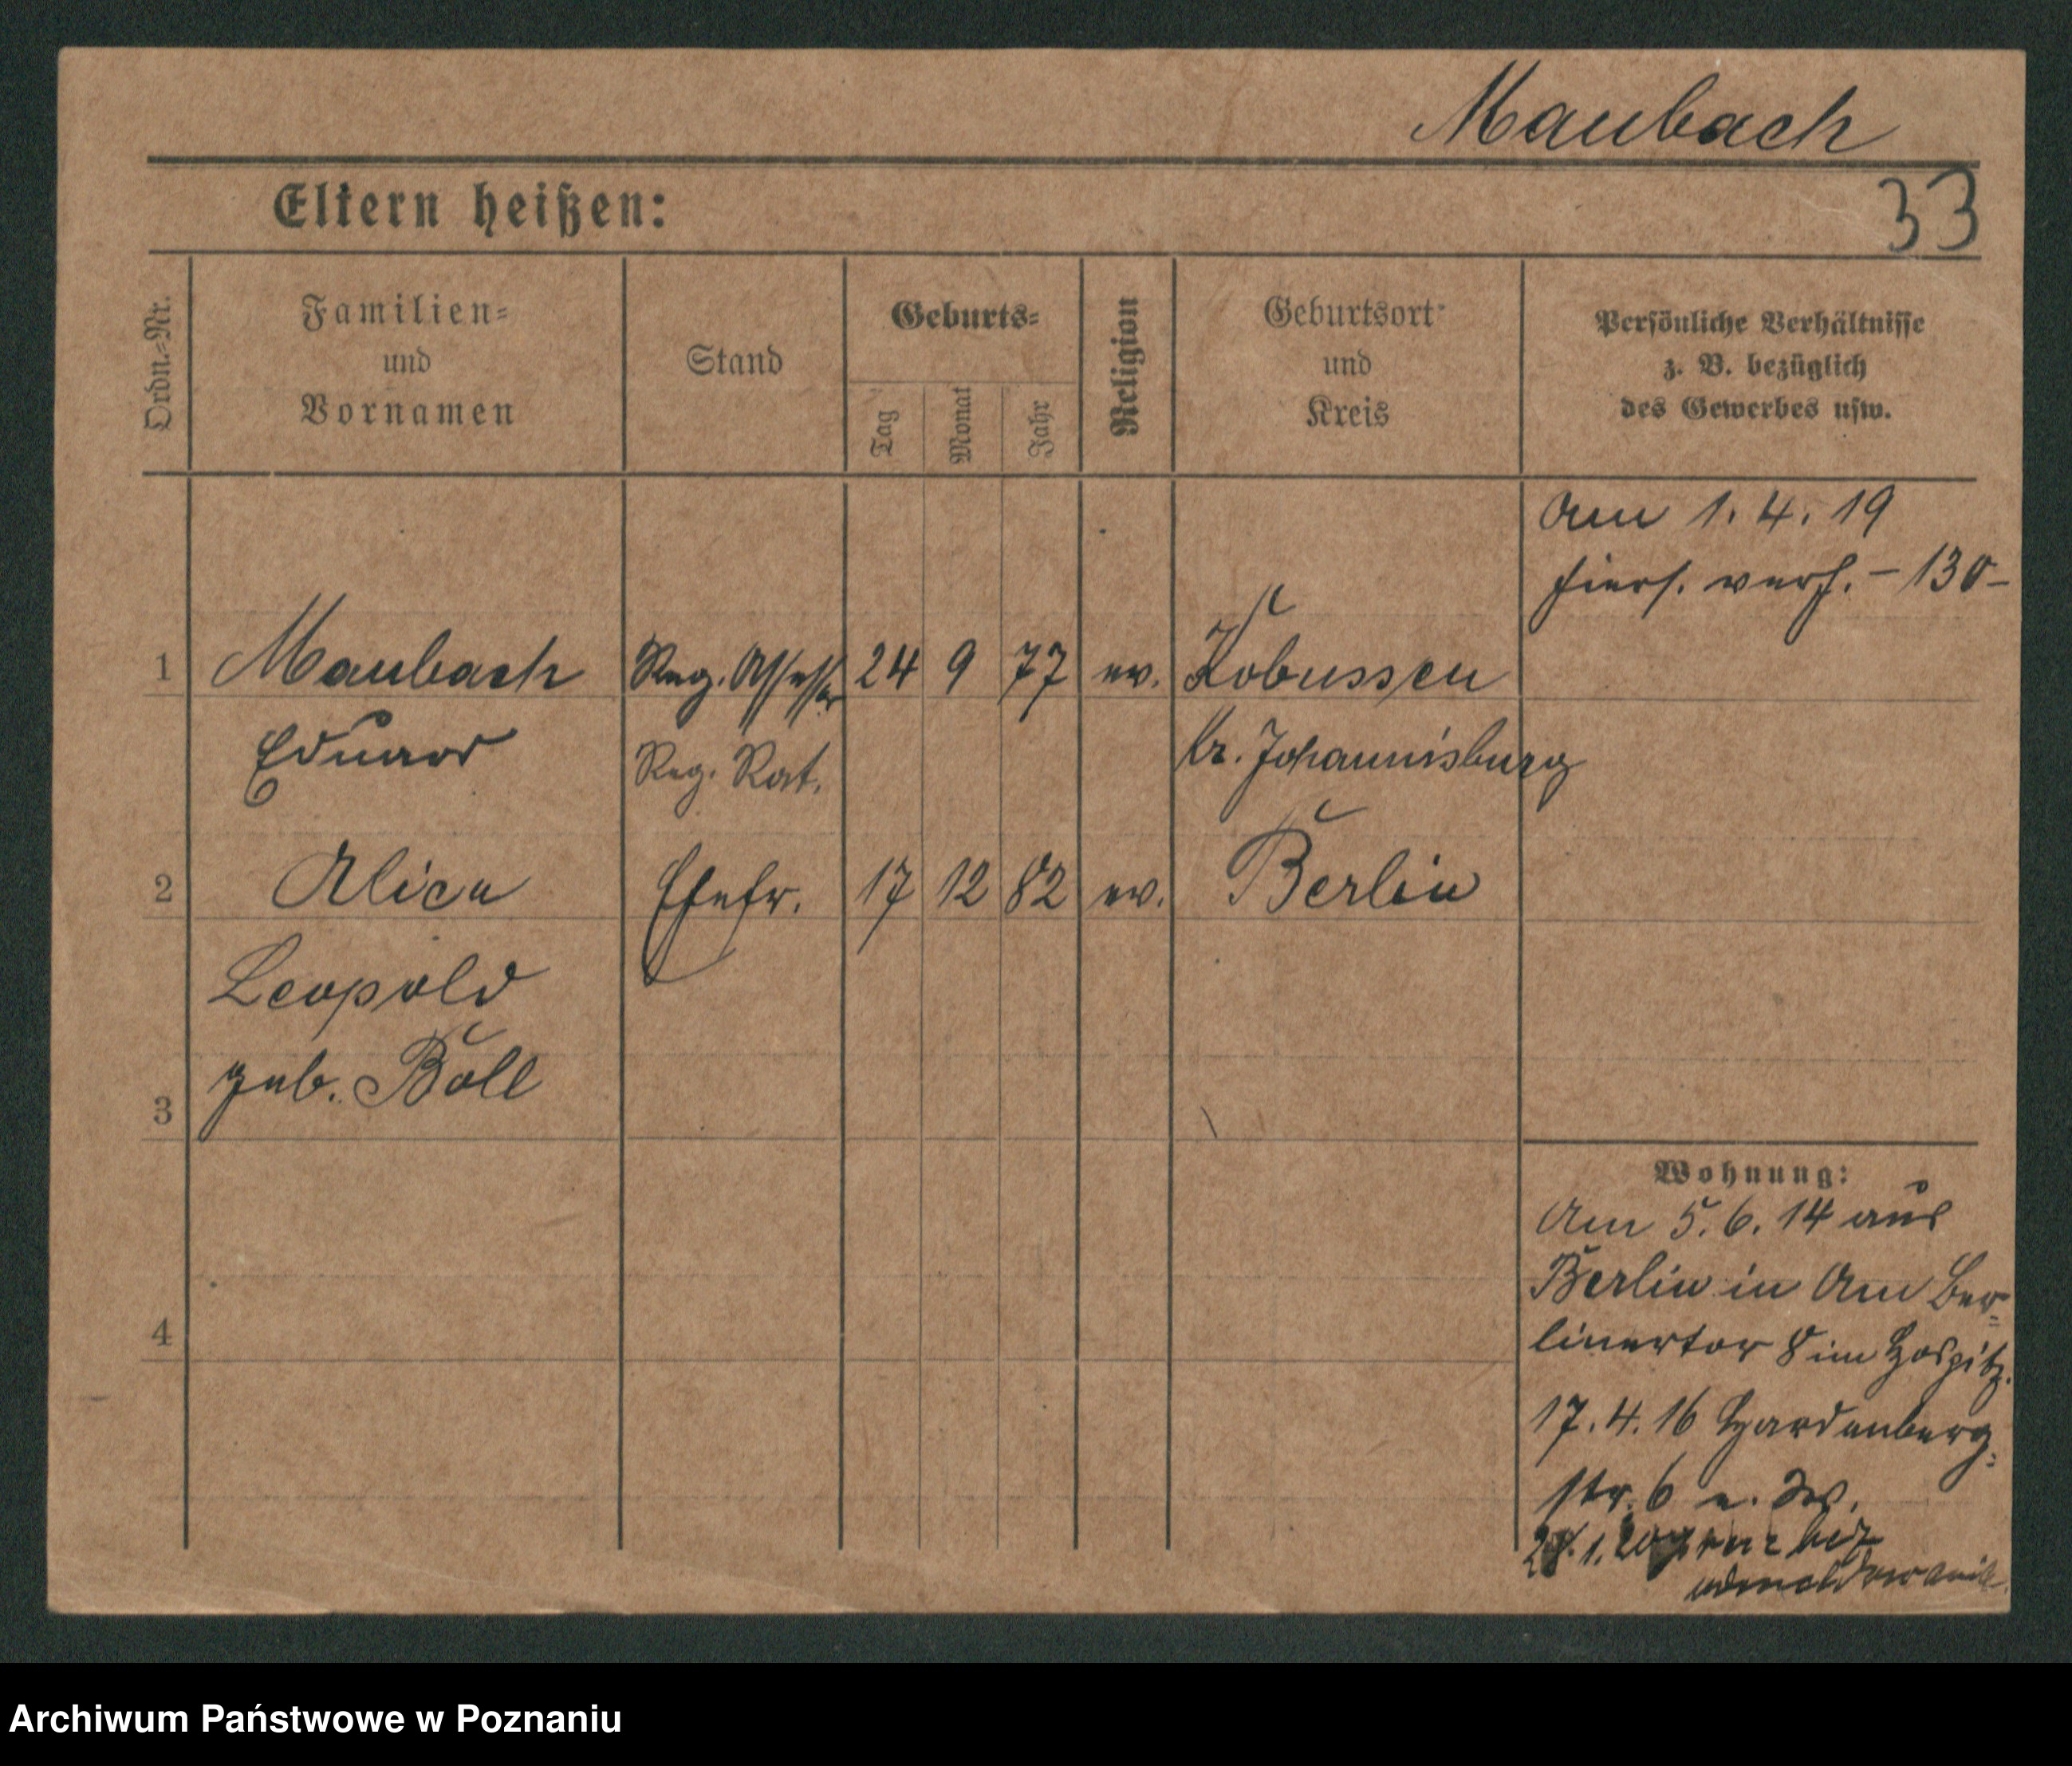 Maubach
33
Eltern heißen:
Ordn.-Nr.
Familien-
und
Vornamen
Stand
Geburts-
Tag
Monat
Jahr
Religion
Geburtsort
und
Kreis
Persönliche Verhältnisse
z. B. bezüglich
des Gewerbes usw.
Am 1. 4. 19
hiers. vers. – 130 –
1 Maubach Reg. Assessor 24 9 77 ev. Kobussen
Eduard Reg. Rat. Kr. Johannisburg
2 Alice Ehefr. 17 12 82 ev. Berlin
Leopold
geb. Böll
3
4
Wohnung:
Am 5. 6. 14 aus
Berlin in Am Ber-
linertor 8 im Hospitz.
17. 4. 16 Hardenberg-
str. 6 n.
Archiwum Państwowe w Poznaniu